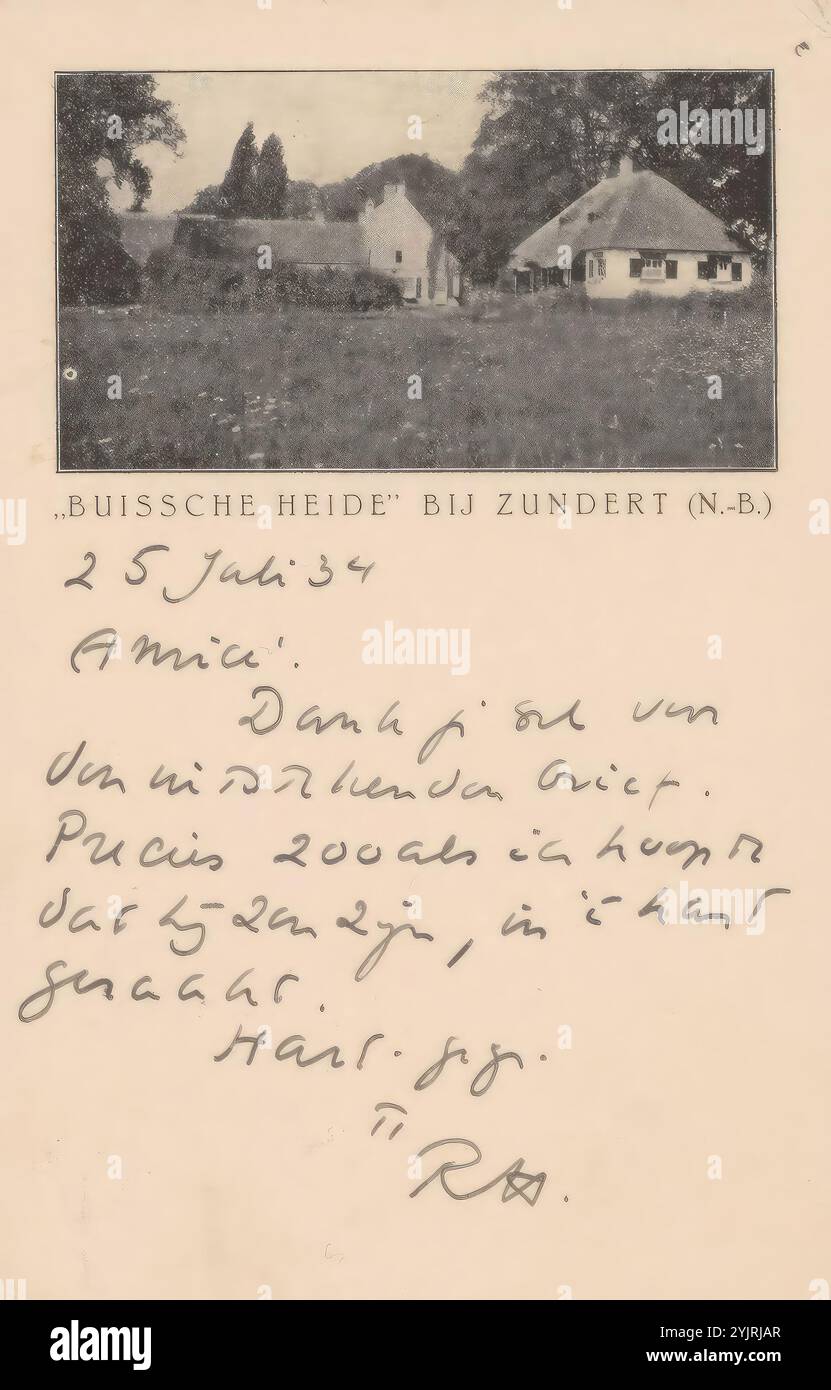 „BUISSCHE HEIDE” BIJ ZUNDERT (N.-B.)
25 Juli 34
Amice'.
Dank je wel voor
den uitstekenden brief.
Precies zooals ik hoopte
dat hij zou zijn, in 't hart
geraakt.
Hart. gr.
RHH.
alamy
Image ID: 2YJRJAR
www.alamy.com